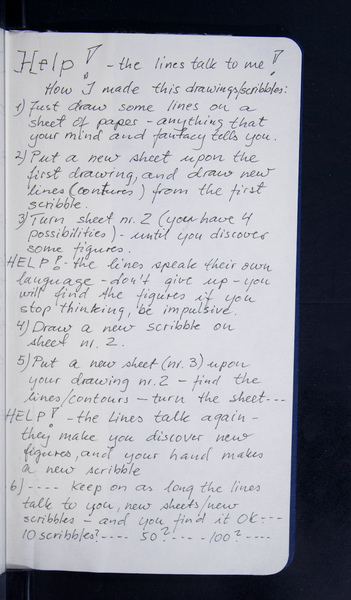 Help! - the lines talk to me!
How I made this drawings/scribbles:
1) Just draw some lines on a
sheet of paper - anything that
your mind and fantacy tells you.
2) Put a new sheet upon the
first drawing, and draw new
lines (contures) from the first
scribble.
3) Turn sheet nr. 2 (you have 4
possibilities) - until you discover
some figures.
HELP! - the lines speak their own
language - don't give up - you
will find the figures if you
stop thinking, be impulsive.
4) Draw a new scribble on
sheet nr. 2.
5) Put a new sheet (nr. 3) upon
your drawing nr. 2 - find the
lines/contours - turn the sheet---
HELP! - the Lines talk again -
they make you discover new
figures, and your hand makes
a new scribble
6) ---- keep on as long the lines
talk to you, new sheets/new
scribbles - and you find it OK---
10 scribbles?---- 50?---- 100?----